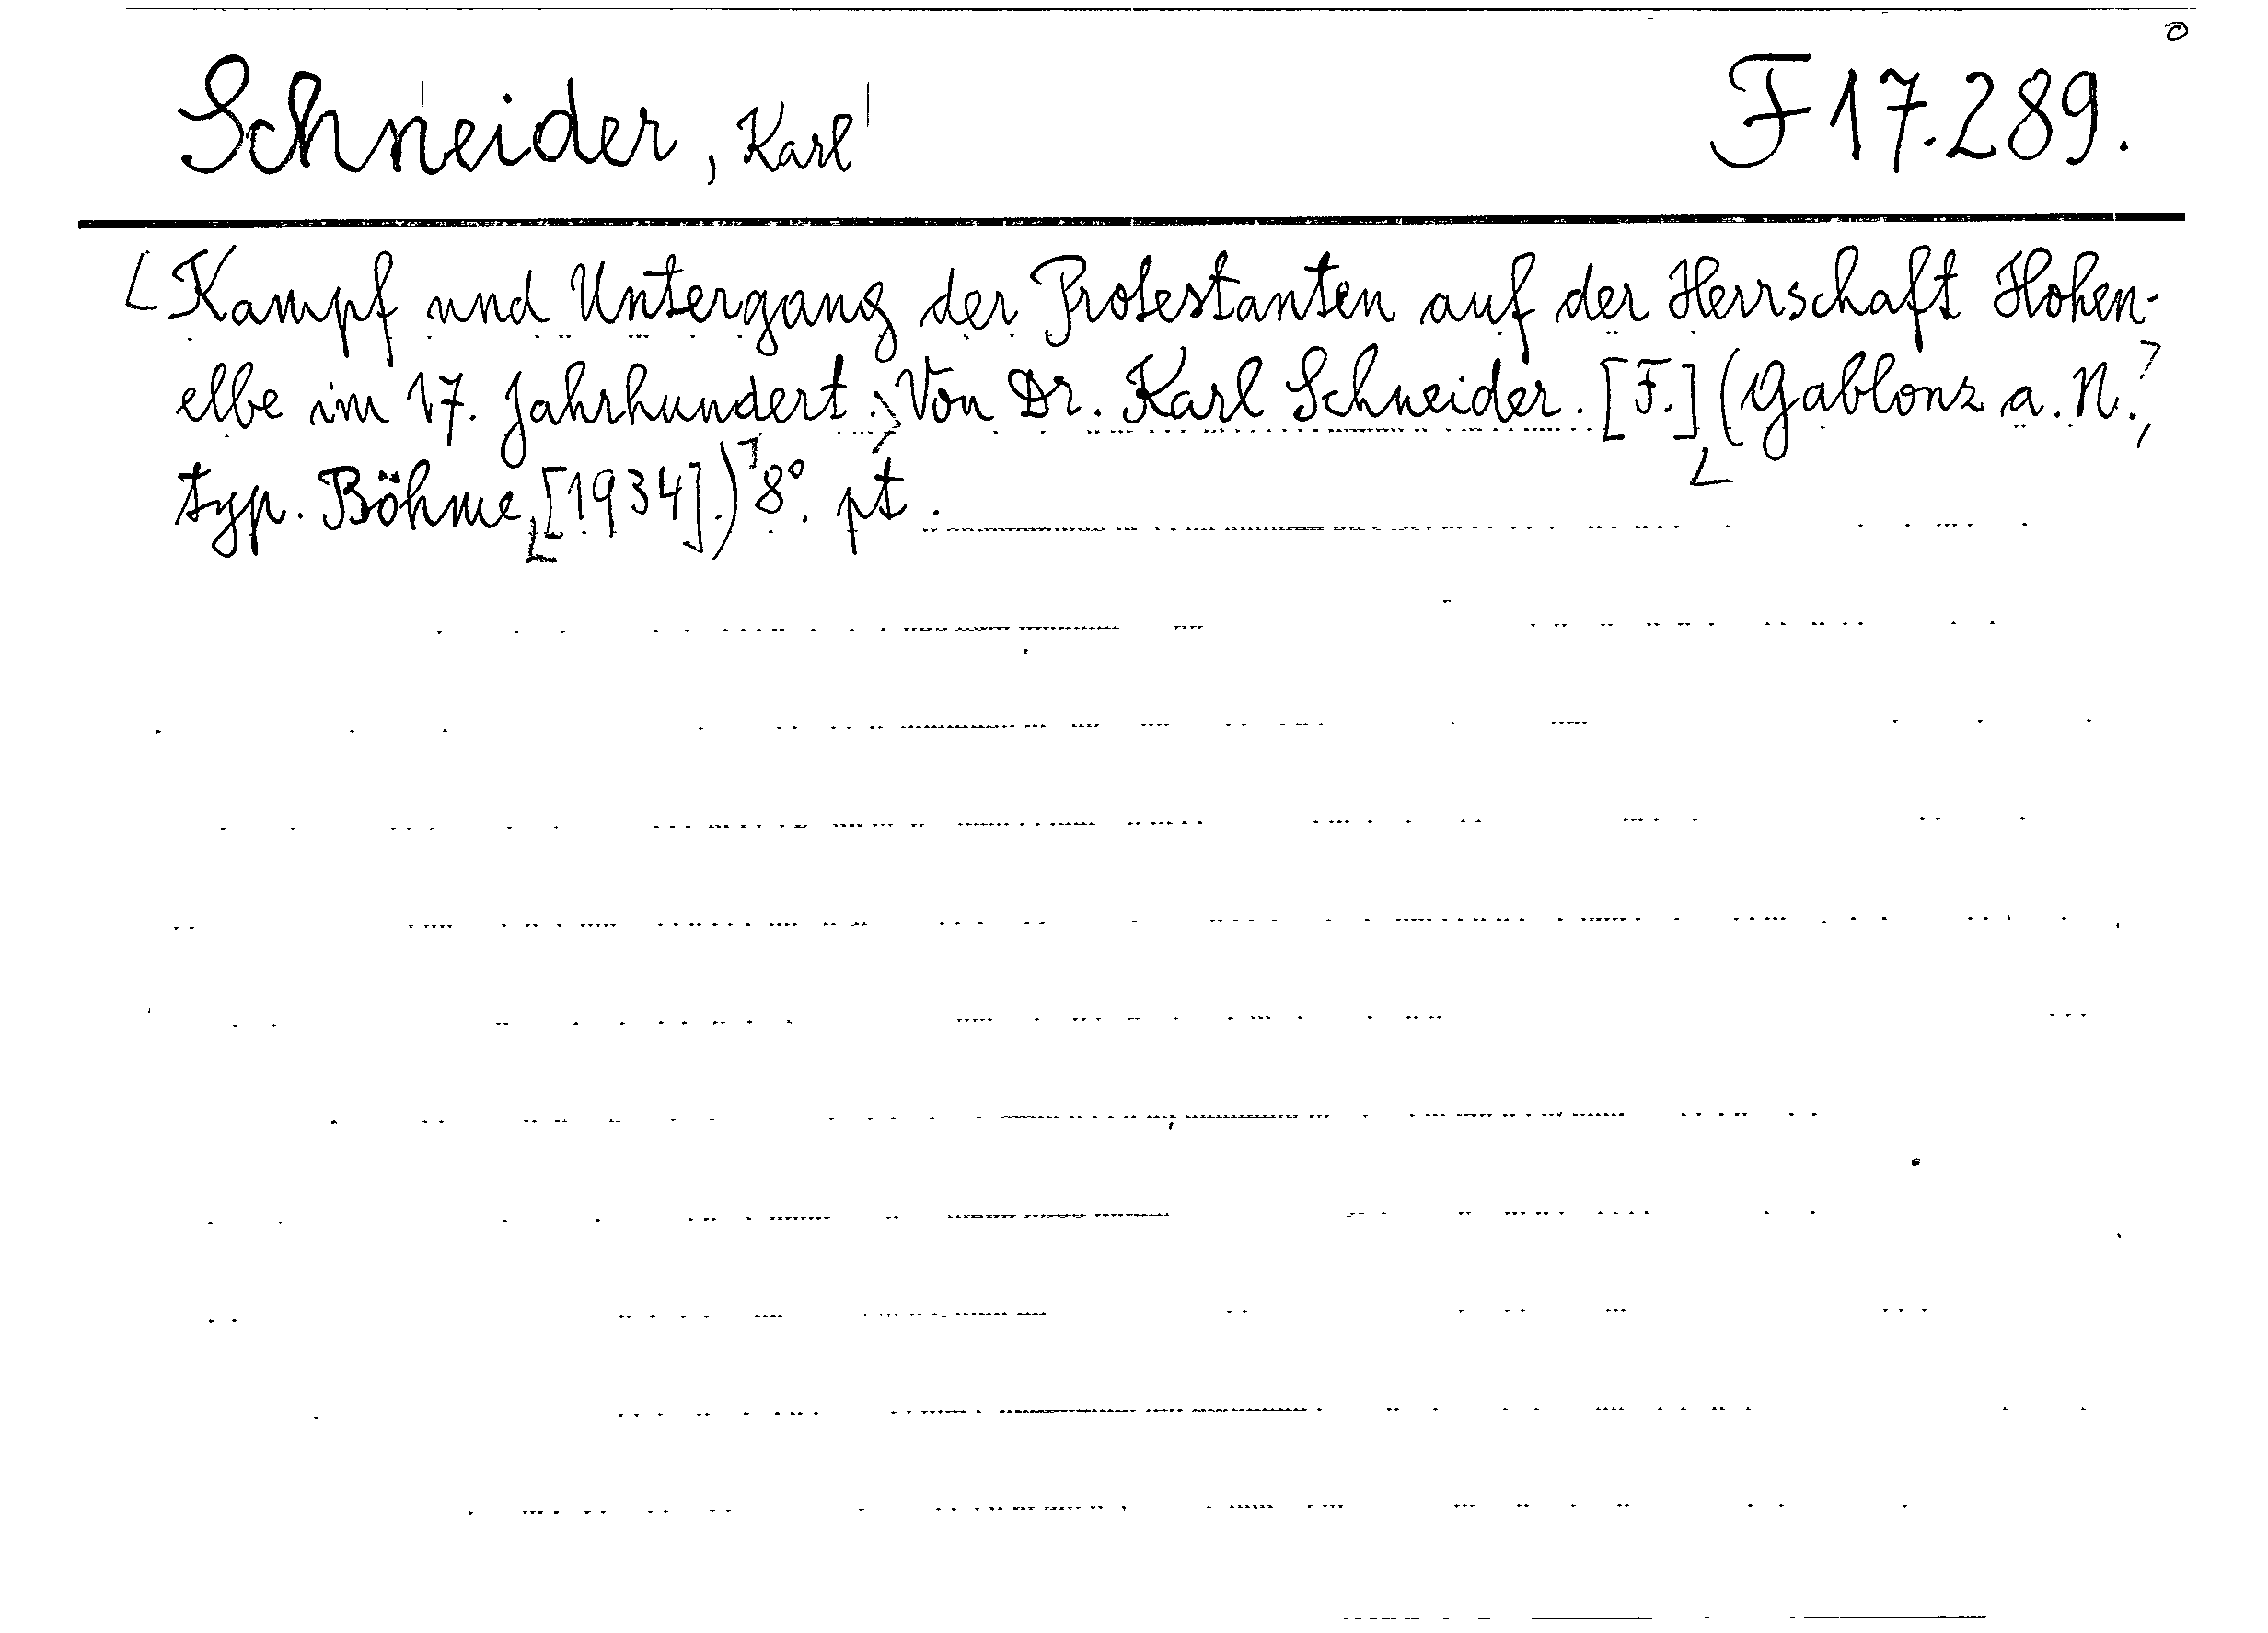 Schneider, Karl F 17.289.
Kampf und Untergang der Protestanten auf der Herrschaft Hohen-
elbe im 17. Jahrhundert. Von Dr. Karl Schneider. [F.] (Gablonz a. N.,
typ. Böhme, [1934].) 8°. pt.